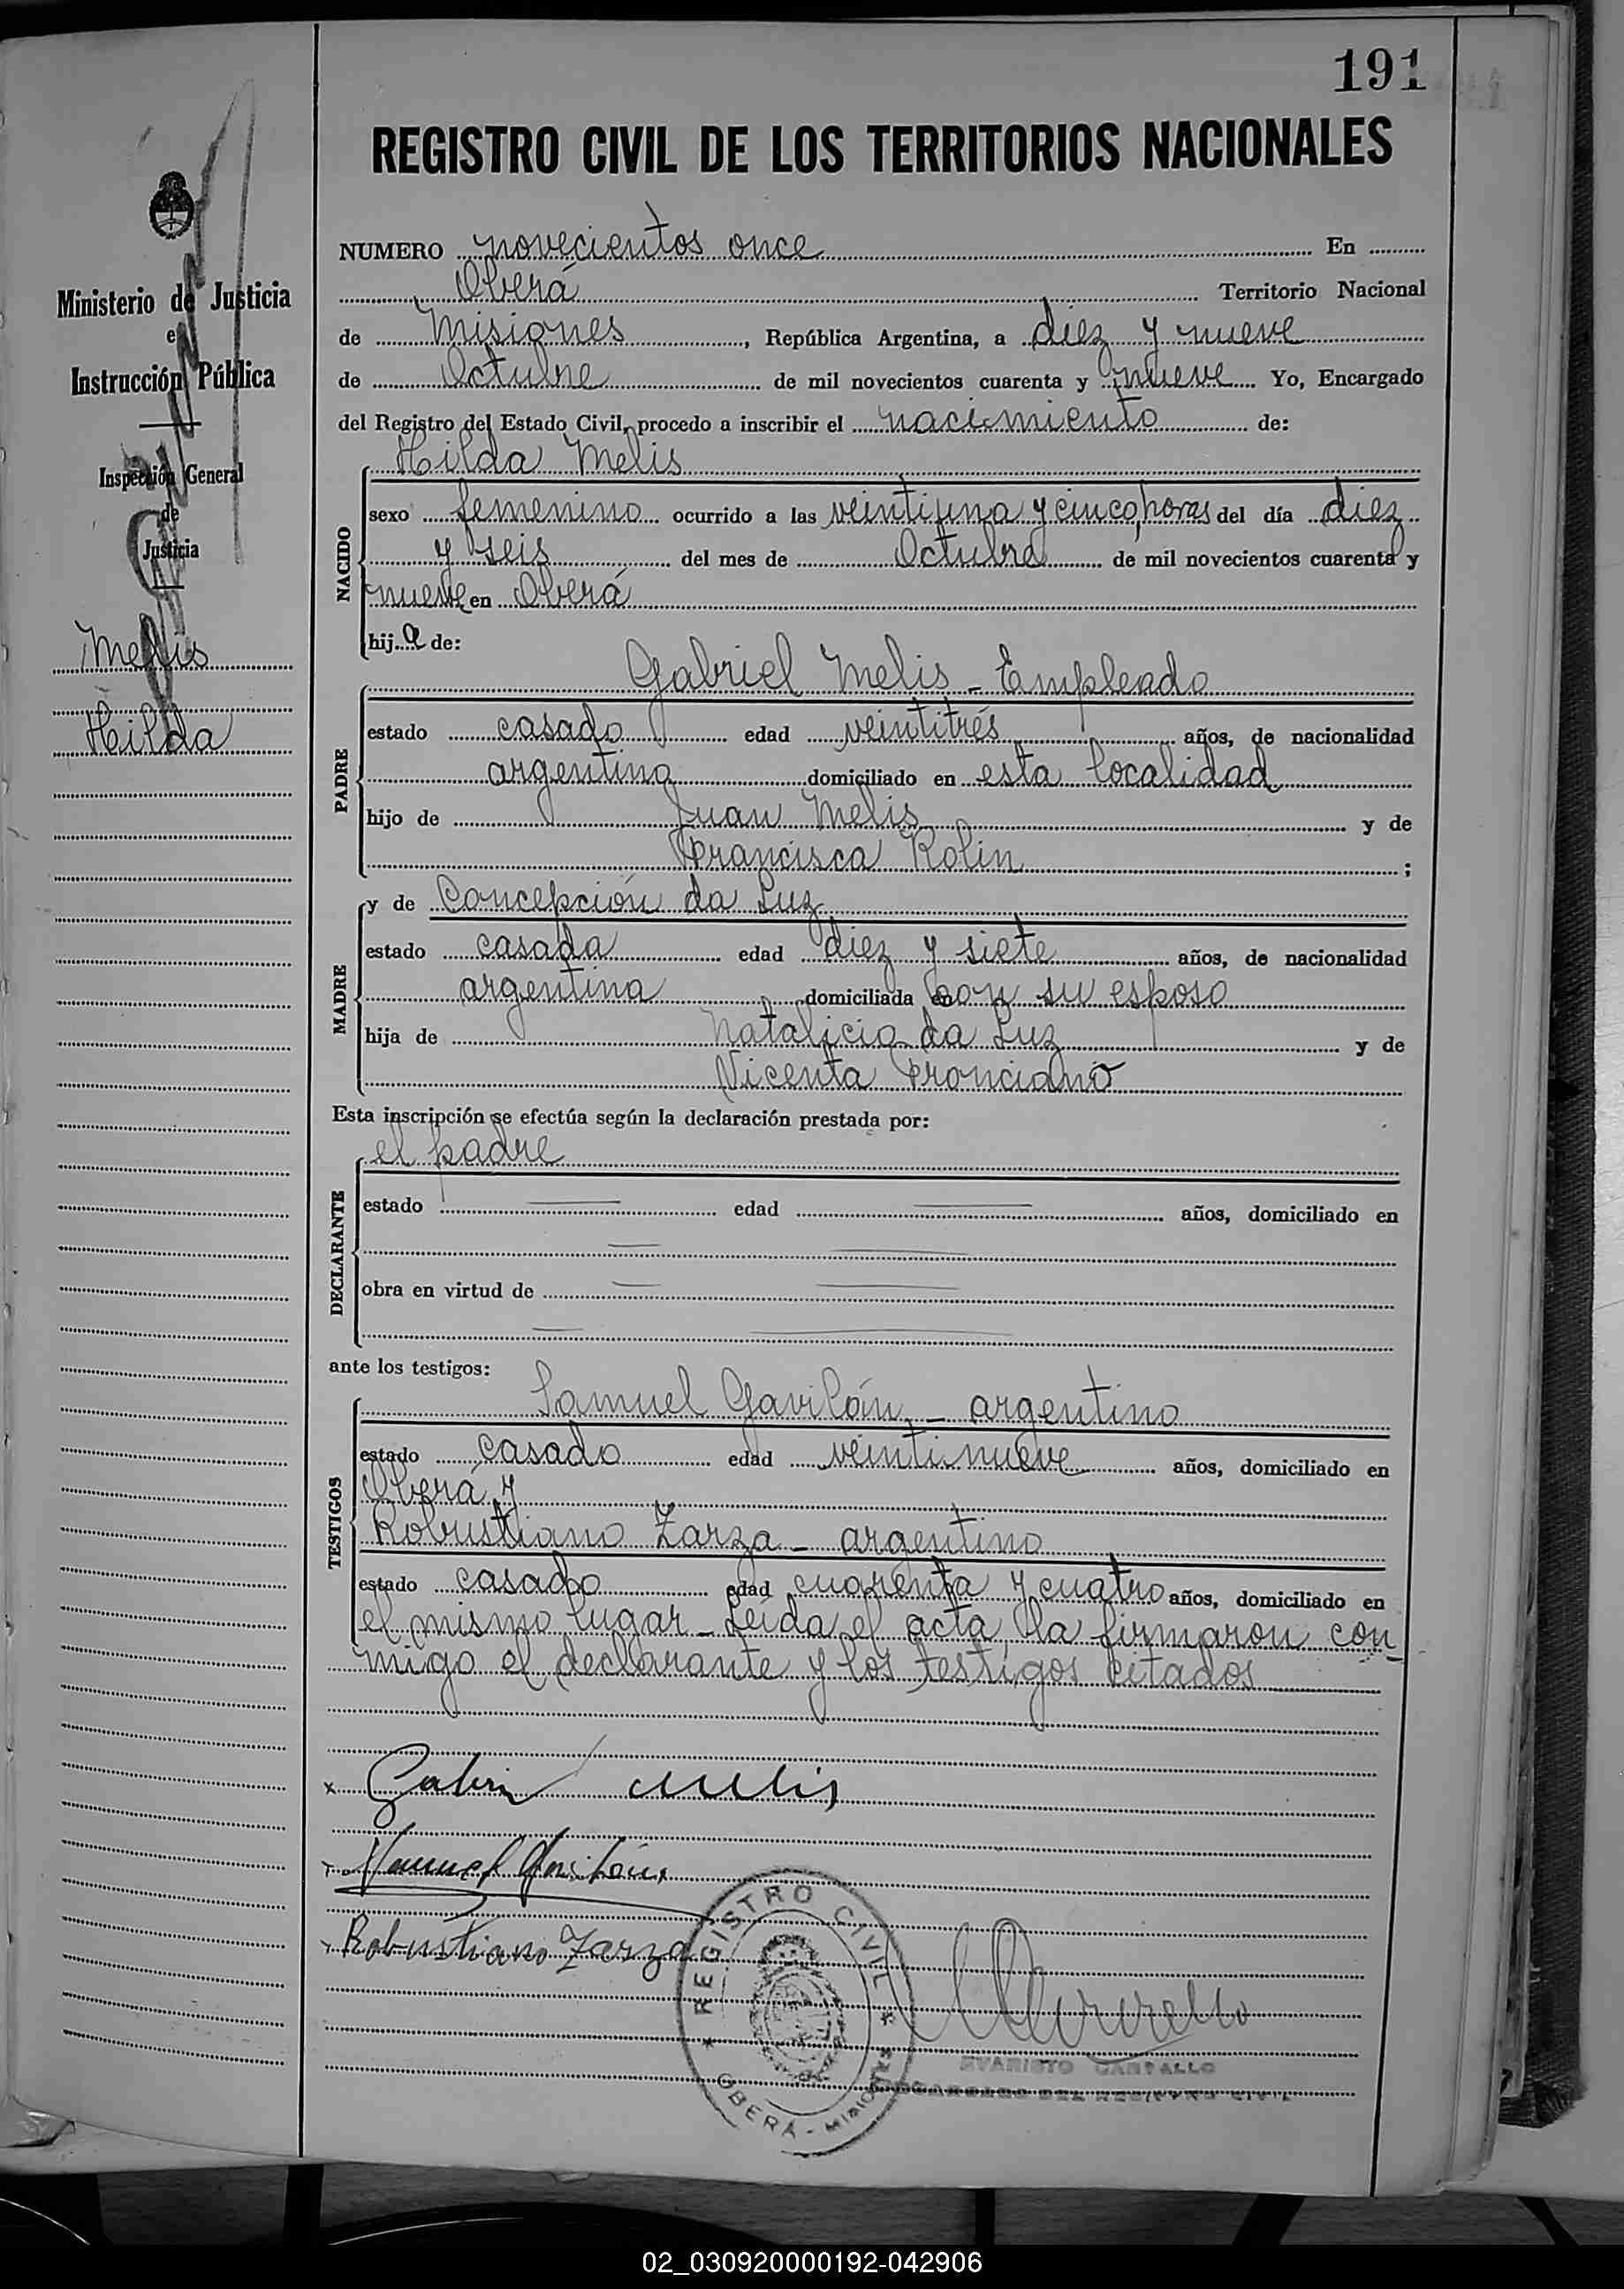 191
REGISTRO CIVIL DE LOS TERRITORIOS NACIONALES
NUMERO novecientos once En
Oberá Territorio Nacional
de Misiones, República Argentina, a diez y nueve
de Octubre de mil novecientos cuarenta y nueve Yo, Encargado
del Registro del Estado Civil, procedo a inscribir el nacimiento de:
Hilda Melis
NACIDO
sexo femenino ocurrido a las veintiuna y cinco horas del día diez
y seis del mes de Octubre de mil novecientos cuarenta y
nueve en Oberá
hija de:
PADRE
Gabriel Melis - Empleado
estado casado edad veintitrés años, de nacionalidad
argentina domiciliado en esta localidad
hijo de Juan Melis y de
Francisca Rolin ;
MADRE
y de Concepción da Luz
estado casada edad diez y siete años, de nacionalidad
argentina domiciliada con su esposo
hija de Natalicio da Luz y de
Vicenta
Esta inscripción se efectúa según la declaración prestada por:
el padre
DECLARANTE
estado edad años, domiciliado en
obra en virtud de
ante los testigos:
TESTIGOS
Samuel Gavilán, - argentino
estado casado edad veintinueve años, domiciliado en
Oberá y
Robustiano Zarza - argentino
estado casado edad cuarenta y cuatro años, domiciliado en
el mismo lugar - Leída el acta, la firmaron con-
migo el declarante y los testigos citados
Gabri Melis
Samuel Gavilán
Robustiano Zarza
REGISTRO CIVIL
OBERÁ - MISIONES
EVARISTO
ENCARGADO DEL REGISTRO CIVIL
Ministerio de Justicia
e
Instrucción Pública
Inspección General
de
Justicia
Melis
Hilda
02_030920000192-042906